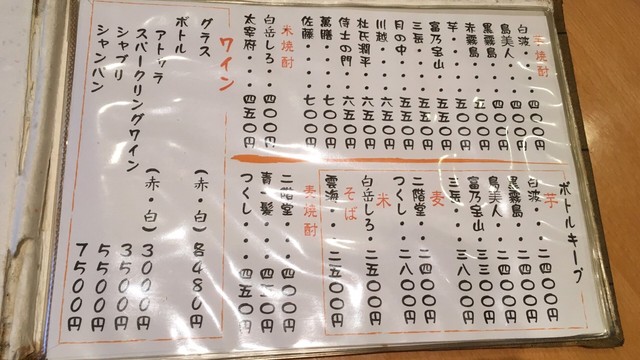 芋焼酎
白波・・・四〇〇円
島美人・・四〇〇円
黒霧島・・四〇〇円
赤霧島・・五〇〇円
芋・・・・五〇〇円
富乃宝山・五五〇円
三岳・・・五五〇円
月の中・・五五〇円
川越・・・六五〇円
杜氏潤平・六五〇円
侍士の門・六五〇円
萬膳・・・七〇〇円
佐藤・・・七〇〇円
米焼酎
白岳しろ・四〇〇円
太宰府・・四五〇円
麦焼酎
二階堂・・四〇〇円
青一髪・・四五〇円
つくし・・四五〇円
ボトルキープ
芋
白波・・・二四〇〇円
黒霧島・・二四〇〇円
島美人・・二四〇〇円
富乃宝山・三三〇〇円
三岳・・・三三〇〇円
麦
二階堂・・二四〇〇円
つくし・・二八〇〇円
米
白岳しろ・二五〇〇円
そば
雲海・・・二五〇〇円
ワイン
グラス (赤・白) 各480円
ボトル
(赤・白) 3000円
スパークリングワイン 3500円
シャブリ 5500円
シャンパン 7500円